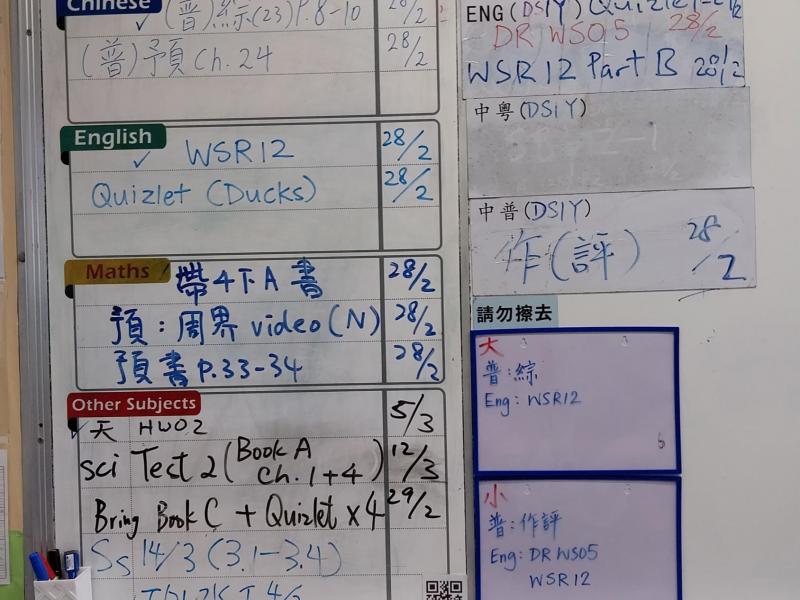 Chinese
✓ (普)綜(23)P.8-10 28/2
(普)預 Ch.24 28/2
English
✓ WSR12 28/2
Quizlet (Ducks) 28/2
Maths
帶4下A書 28/2
預:周界 video(N) 28/2
預書 P.33-34 28/2
Other Subjects
天 HW02 5/3
sci Test 2 (Book A Ch. 1+4) 12/3
Bring Book C + Quizlet x4 29/2
Ss 14/3 (3.1-3.4)
ENG(DS1Y) Quizlet
DR WS05 28/2
WSR12 Part B 28/2
中粵(DS1Y)
中普(DS1Y)
作(評) 28/2
請勿擦去
大
普:綜
Eng: WSR12
6
小
普:作評
Eng: DR WS05
WSR12